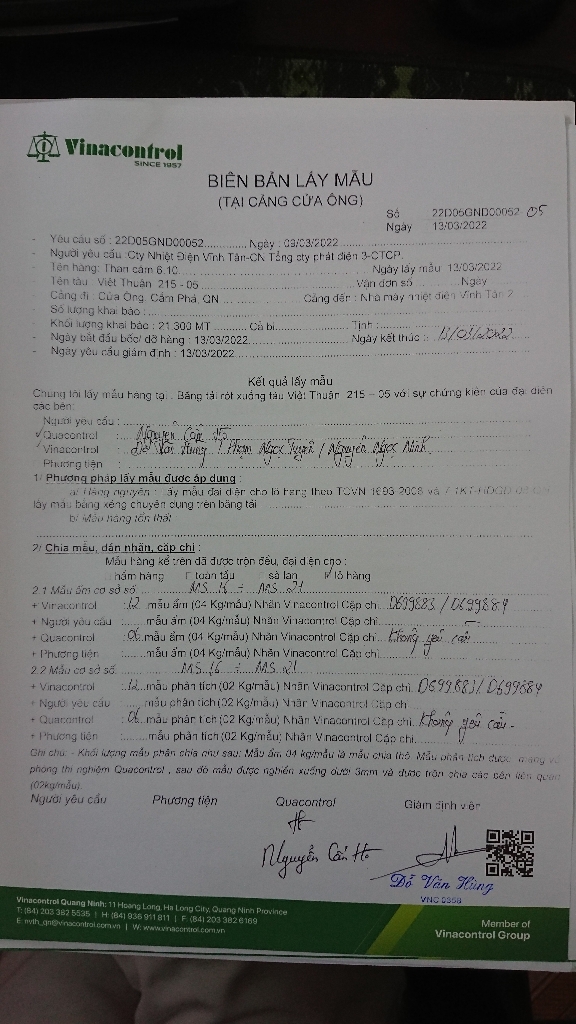 Vinacontrol
SINCE 1957
BIÊN BẢN LẤY MẪU
(TẠI CẢNG CỬA ÔNG)
Số 22D05GND00052-05
Ngày 13/03/2022
- Yêu cầu số : 22D05GND00052 Ngày : 09/03/2022
- Người yêu cầu Cty Nhiệt Điện Vĩnh Tân-CN Tổng cty phát điện 3-CTCP.
- Tên hàng: Than cám 6.10 Ngày lấy mẫu 13/03/2022
- Tên tàu : Việt Thuận 215 - 05 Vận đơn số Ngày
- Cảng đi : Cửa Ông, Cẩm Phả, QN Cảng đến : Nhà máy nhiệt điện Vĩnh Tân 2
- Số lượng khai báo :
Khối lượng khai báo : 21.300 MT Cả bì Tịnh :
- Ngày bắt đầu bốc/ dỡ hàng : 13/03/2022 Ngày kết thúc : 13/03/2022
- Ngày yêu cầu giám định : 13/03/2022
Kết quả lấy mẫu
Chúng tôi lấy mẫu hàng tại : Băng tải rót xuống tàu Việt Thuận 215 – 05 với sự chứng kiến của đại diện
các bên:
Người yêu cầu :
✓ Quacontrol : Nguyễn
✓ Vinacontrol : Đỗ Văn Hùng / Phạm Ngọc Tuyên / Nguyễn Ngọc Ninh
Phương tiện :
1/ Phương pháp lấy mẫu được áp dụng :
a/ Hàng nguyên : lấy mẫu đại diện cho lô hàng theo TCVN 1693-2008 và
lấy mẫu bằng xẻng chuyên dụng trên băng tải
b/ Mẫu hàng tổn thất
2/ Chia mẫu, dán nhãn, cặp chì :
Mẫu hàng kể trên đã được trộn đều, đại diện cho :
hầm hàng toàn tàu sà lan ✓ lô hàng
2.1 Mẫu ẩm cơ sở số MS 16 ÷ MS 21
+ Vinacontrol : 12 mẫu ẩm (04 Kg/mẫu) Nhãn Vinacontrol Cặp chì D699883 / D699884
+ Người yêu cầu : mẫu ẩm (04 Kg/mẫu) Nhãn Vinacontrol Cặp chì
+ Quacontrol : 06 mẫu ẩm (04 Kg/mẫu) Nhãn Vinacontrol Cặp chì Không yêu cầu
+ Phương tiện : mẫu ẩm (04 Kg/mẫu) Nhãn Vinacontrol Cặp chì
2.2 Mẫu cơ sở số MS 16 ÷ MS 21
+ Vinacontrol : 12 mẫu phân tích (02 Kg/mẫu) Nhãn Vinacontrol Cặp chì D699883 / D699884
+ Người yêu cầu : mẫu phân tích (02 Kg/mẫu) Nhãn Vinacontrol Cặp chì
+ Quacontrol : 06 mẫu phân tích (02 Kg/mẫu) Nhãn Vinacontrol Cặp chì Không yêu cầu.
+ Phương tiện : mẫu phân tích (02 Kg/mẫu) Nhãn Vinacontrol Cặp chì
Ghi chú: - Khối lượng mẫu phân chia như sau: Mẫu ẩm 04 kg/mẫu là mẫu chia thô. Mẫu phân tích được mang về
phòng thí nghiệm Quacontrol , sau đó mẫu được nghiền xuống dưới 3mm và được trộn chia các bên liên quan
(02kg/mẫu).
Người yêu cầu Phương tiện Quacontrol Giám định viên
Nguyễn
Đỗ Văn Hùng
VNC 0358
Vinacontrol Quang Ninh: 11 Hoang Long, Ha Long City, Quang Ninh Province
T: (84) 203 382 5535 | H: (84) 936 911 811 | F: (84) 203 382 6169
E: nvth_qn@vinacontrol.com.vn | W: www.vinacontrol.com.vn
Member of
Vinacontrol Group